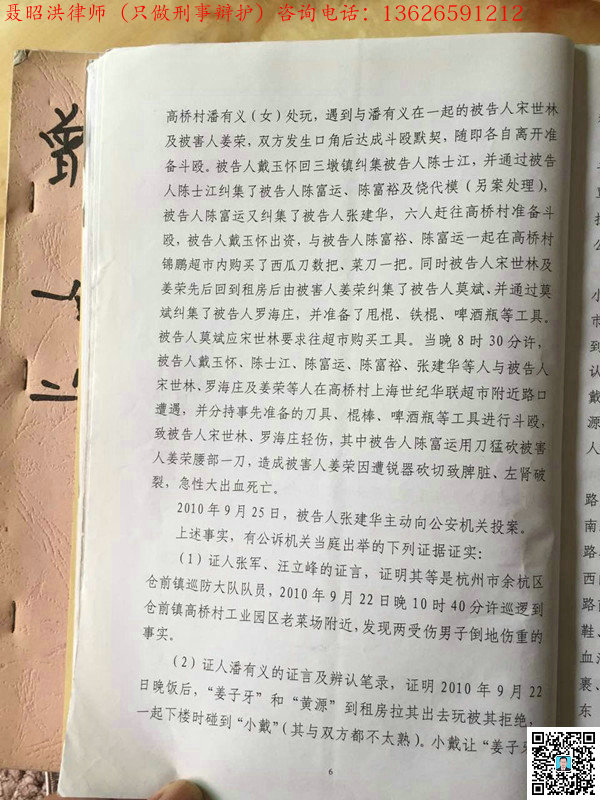 聂昭洪律师（只做刑事辩护）咨询电话：13626591212
高桥村潘有义（女）处玩，遇到与潘有义在一起的被告人宋世林
及被害人姜荣，双方发生口角后达成斗殴默契，随即各自离开准
备斗殴。被告人戴玉怀回三墩镇纠集被告人陈士江，并通过被告
人陈士江纠集了被告人陈富运、陈富裕及饶代模（另案处理），
被告人陈富运又纠集了被告人张建华，六人赶往高桥村准备斗
殴，被告人戴玉怀出资，与被告人陈富裕、陈富运一起在高桥村
锦鹏超市内购买了西瓜刀数把、菜刀一把。同时被告人宋世林及
姜荣先后回到租房后由被害人姜荣纠集了被告人莫斌、并通过莫
斌纠集了被告人罗海庄，并准备了甩棍、铁棍、啤酒瓶等工具。
被告人莫斌应宋世林要求往超市购买工具。当晚8时30分许，
被告人戴玉怀、陈士江、陈富运、陈富裕、张建华等人与被告人
宋世林、罗海庄及姜荣等人在高桥村上海世纪华联超市附近路口
遭遇，并分持事先准备的刀具、棍棒、啤酒瓶等工具进行斗殴，
致被告人宋世林、罗海庄轻伤，其中被告人陈富运用刀猛砍被害
人姜荣腰部一刀，造成被害人姜荣因遭锐器砍切致脾脏、左肾破
裂，急性大出血死亡。
2010年9月25日，被告人张建华主动向公安机关投案。
上述事实，有公诉机关当庭出举的下列证据证实：
（1）证人张军、汪立峰的证言，证明其等是杭州市余杭区
仓前镇巡防大队队员，2010年9月22日晚10时40分许巡逻到
仓前镇高桥村工业园区老菜场附近，发现两受伤男子倒地伤重的
事实。
（2）证人潘有义的证言及辨认笔录，证明2010年9月22
日晚饭后，“姜子牙”和“黄源”到租房拉其出去玩被其拒绝，
一起下楼时碰到“小戴”（其与双方都不太熟）。小戴让“姜子牙
6
小
市
到
认
戴
源
人
路
南
路
西
路
鞋
血
裹、
东